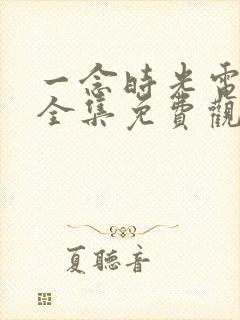 一念時光電
全集免費觀
夏聽音